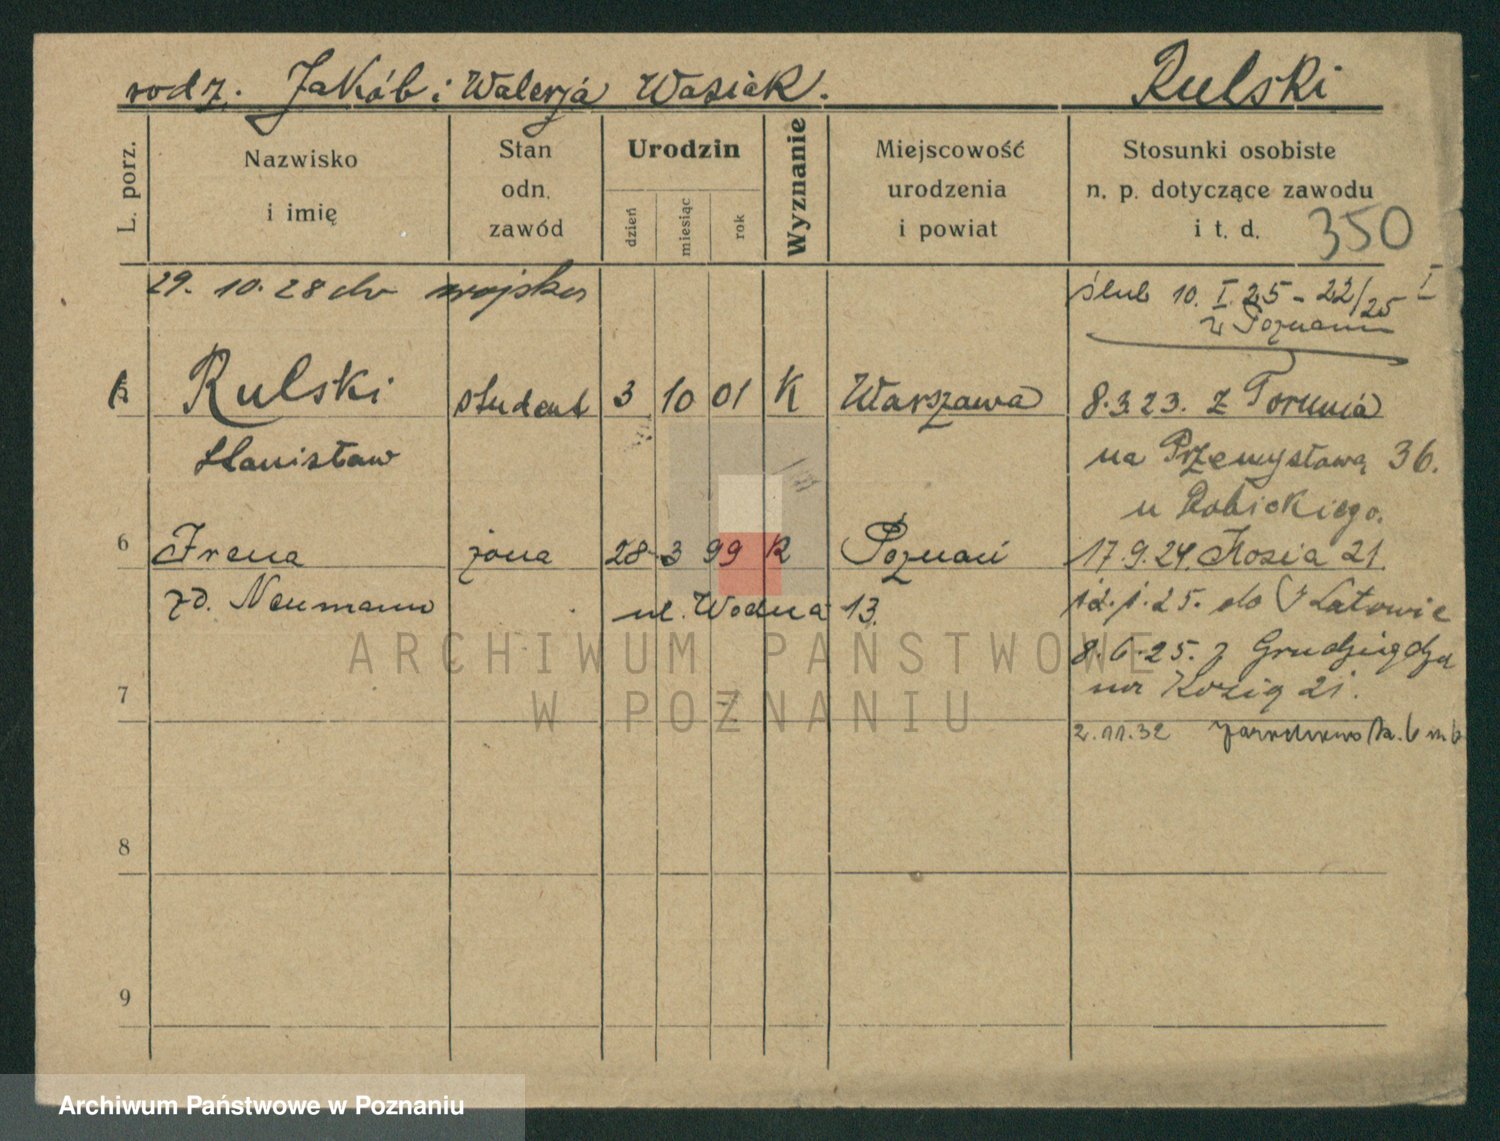 rodz. Jakób i Walerja Wasiak. Rulski
L. porz.
Nazwisko
i imię
Stan
odn.
zawód
Urodzin
dzień
miesiąc
rok
Wyznanie
Miejscowość
urodzenia
i powiat
Stosunki osobiste
n. p. dotyczące zawodu
i t. d.
350
29. 10. 28 do wojska
ślub 10. I. 25 - 22/25 I
w Poznaniu
Rulski student 3 10 01 K Warszawa 8.3.23. z Torunia
Stanisław na Przemysłową 36.
u
6 Irena żona 28 3 99 K Poznań 17.9.24. Kozia 21.
zd. Neumann ul. Wodna 13. 12.1.25. do
8.6.25. z Grudziądza
na Kozią 21.
7
2.11.32
8
9
ARCHIWUM PAŃSTWOWE
W POZNANIU
Archiwum Państwowe w Poznaniu